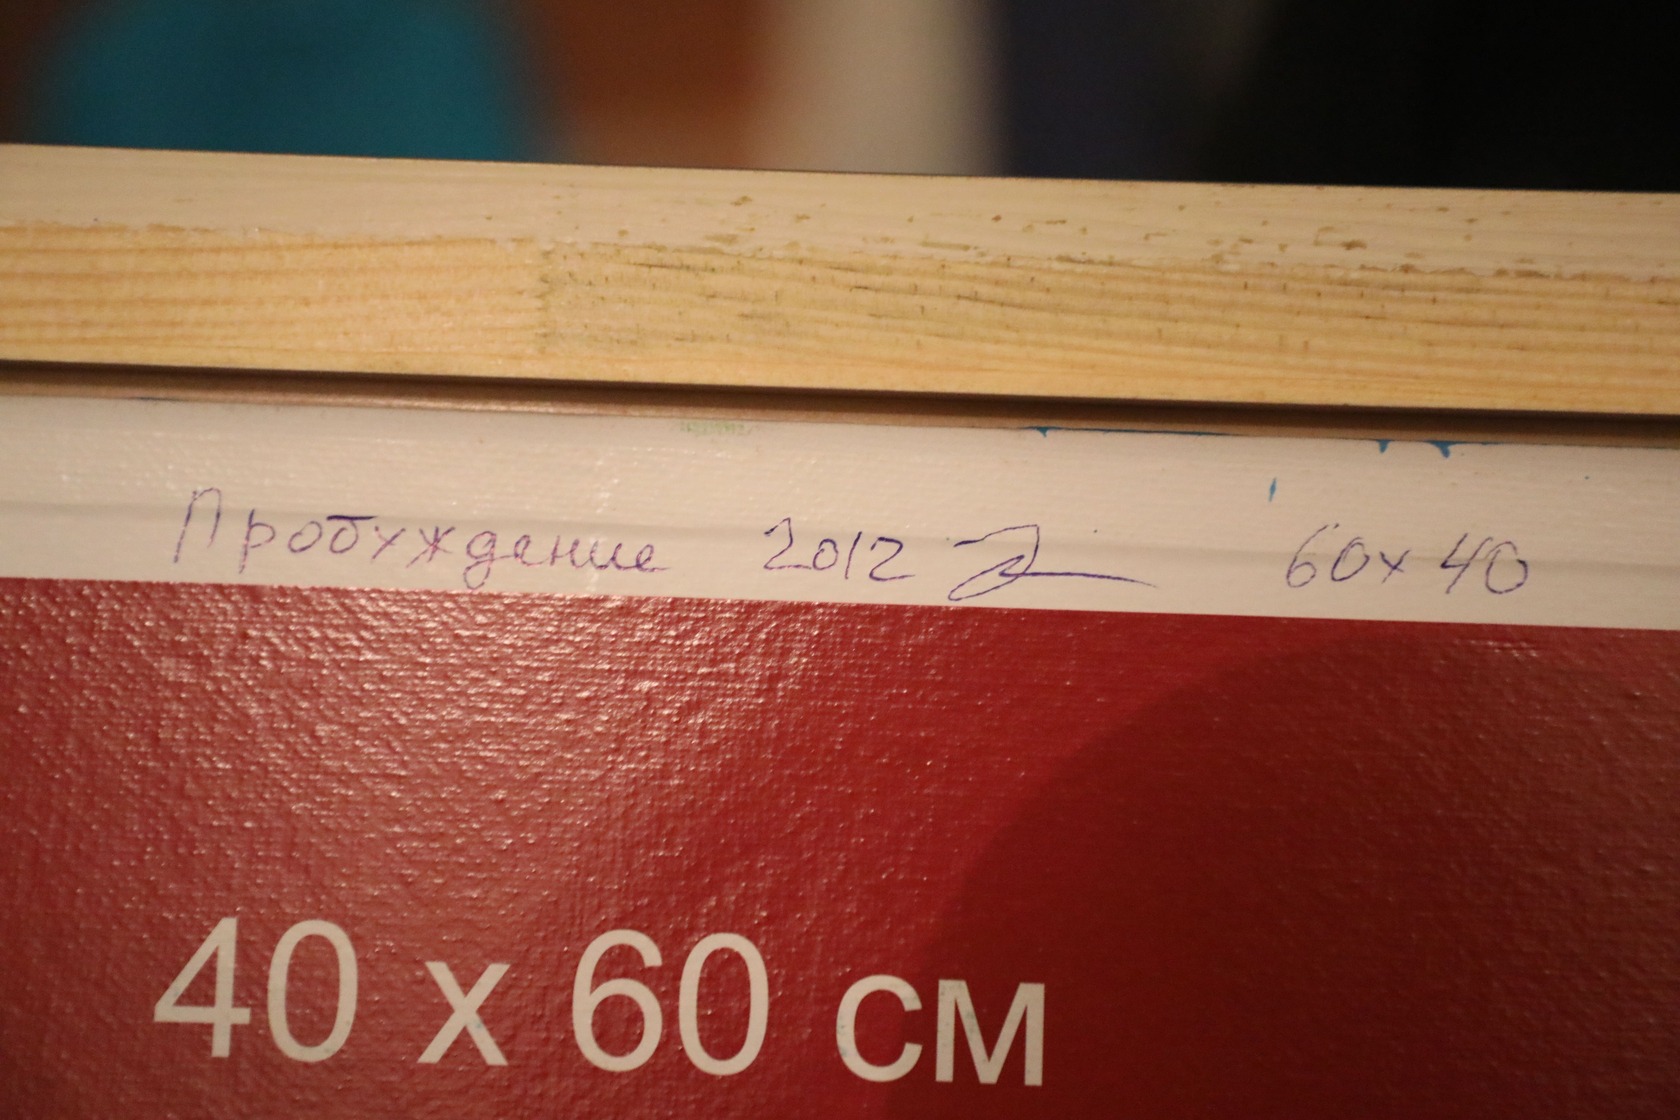 Пробуждение 2012 60x40
40 x 60 см